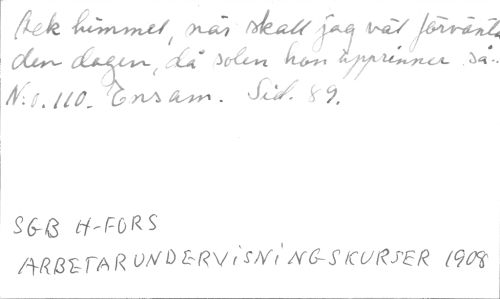 Ack himmel, när skall jag väl förvänta
den dagen, då solen hon upprinner så..
N:o. 110. Ensam. Sid. 89.
SGB H-FORS
ARBETARUNDERVISNINGSKURSER 1908